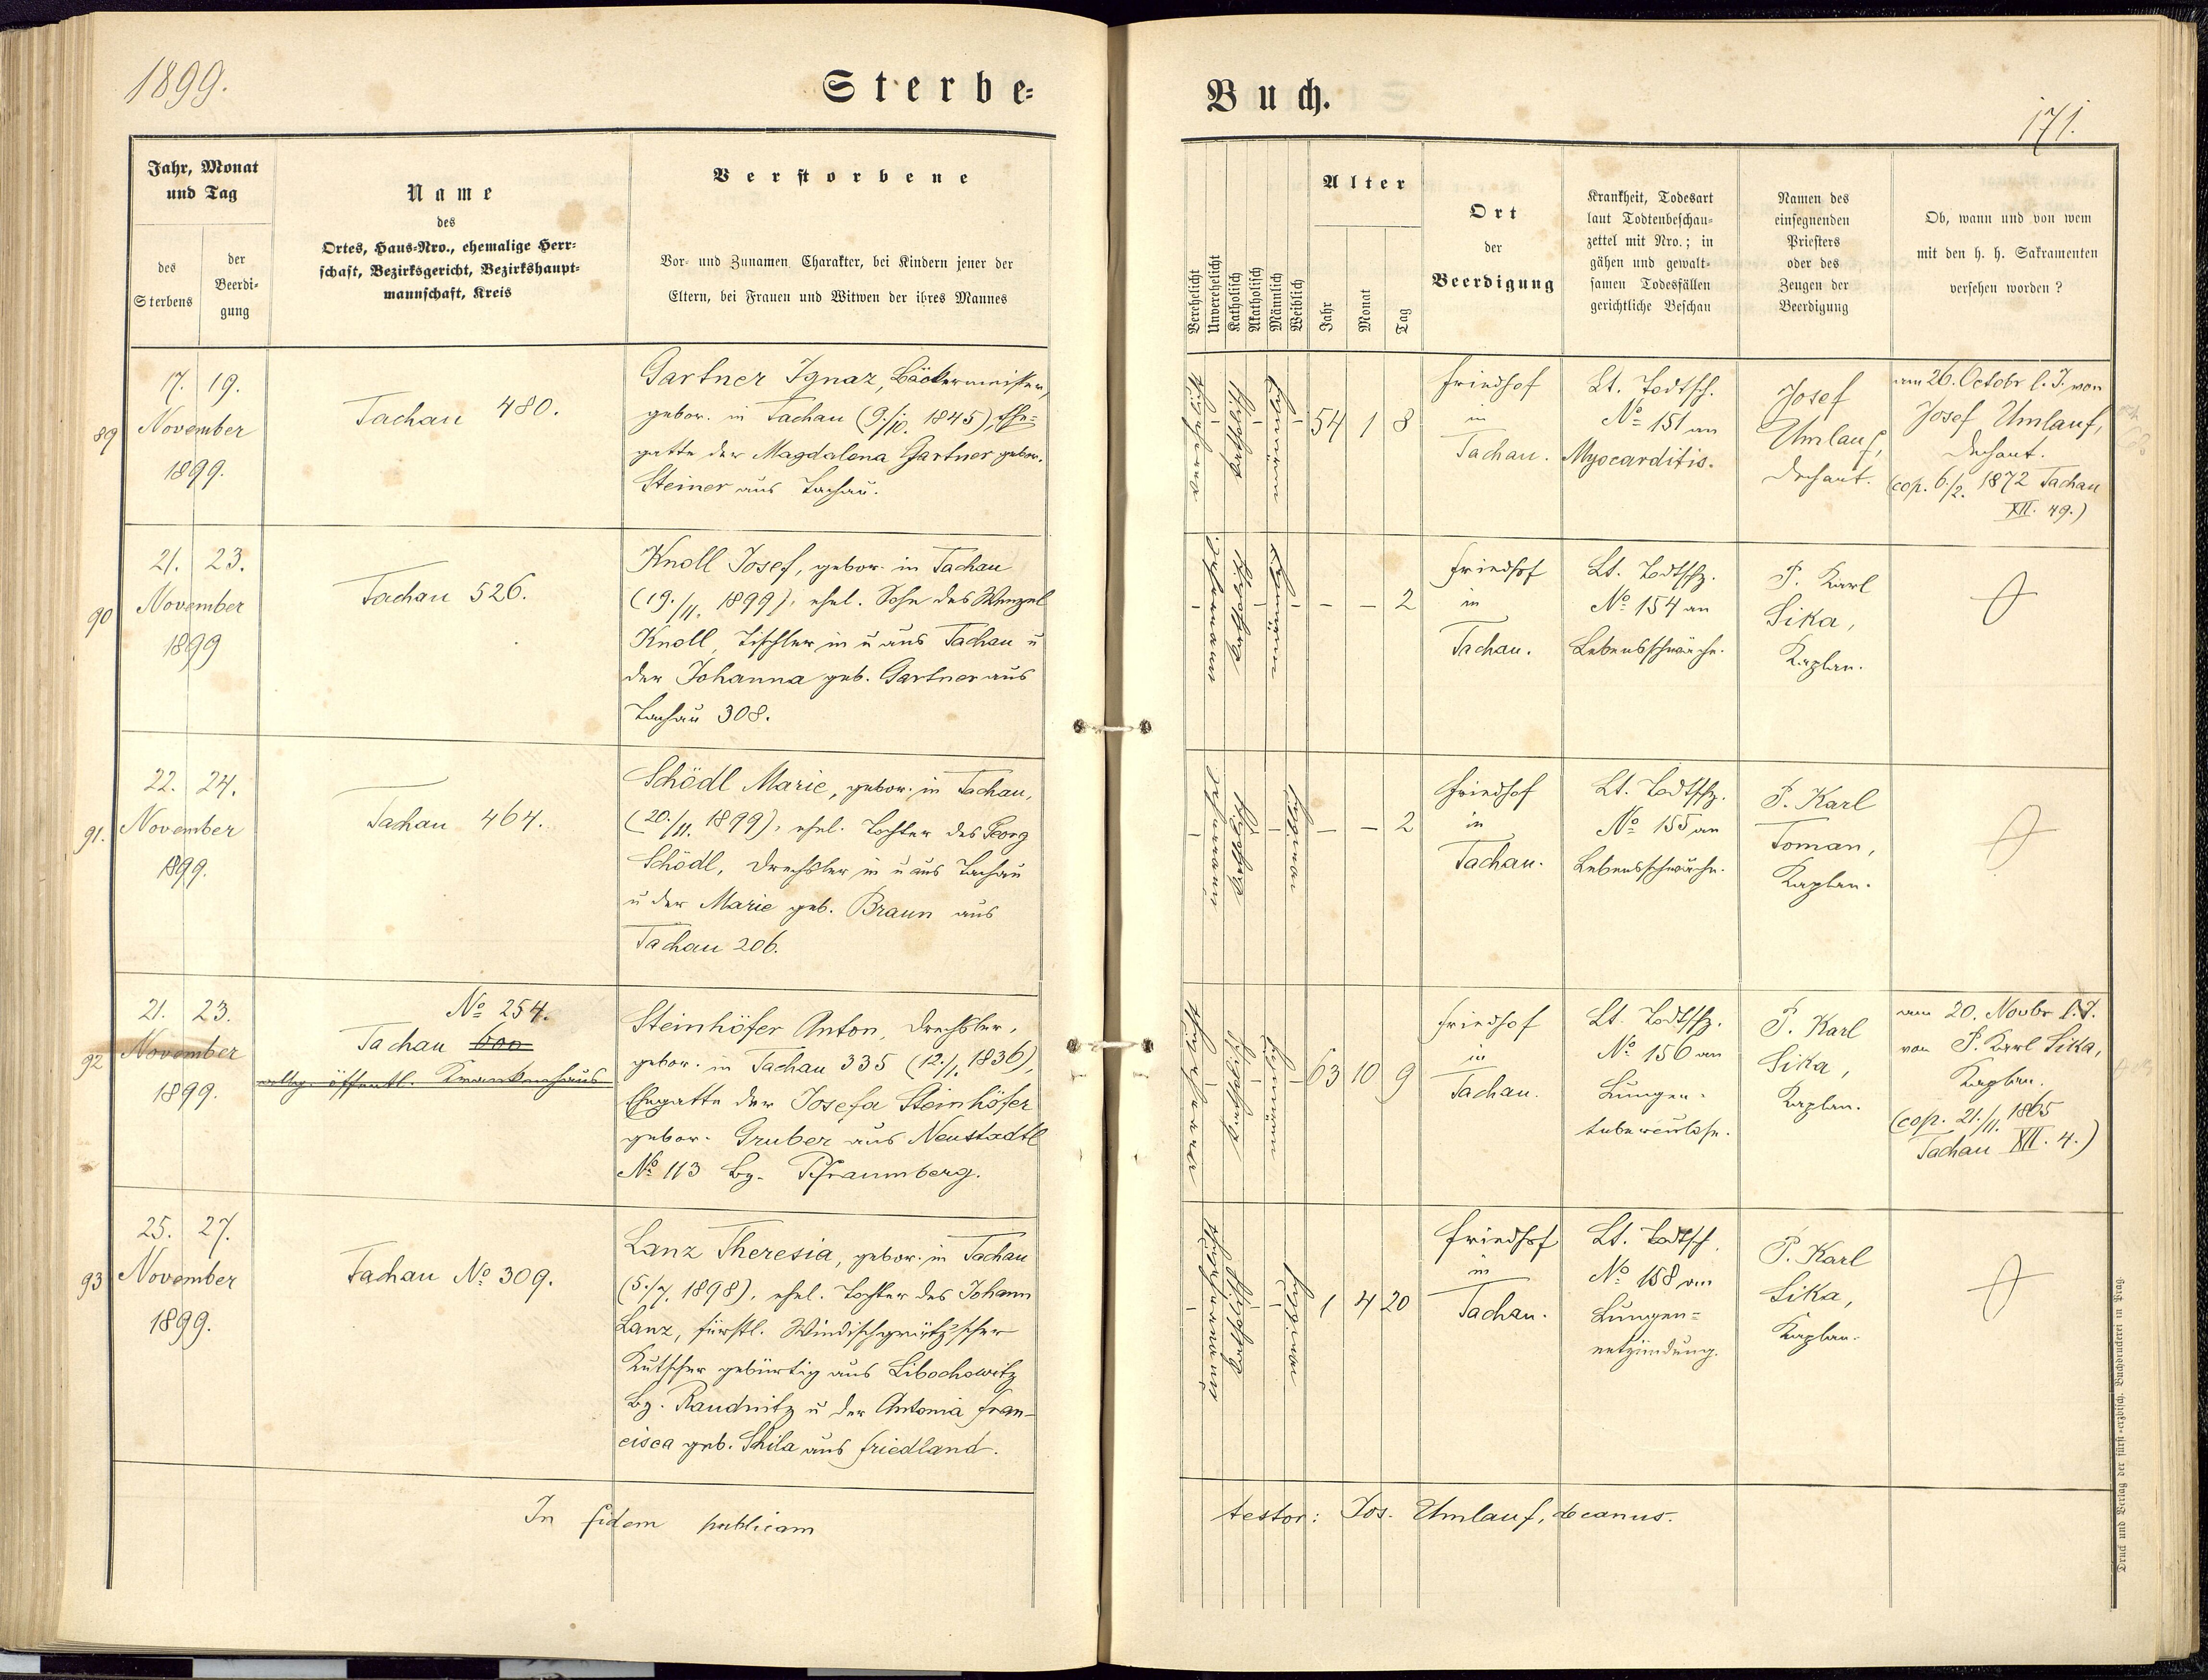 1899.
Sterbe-
Jahr, Monat
und Tag
des
Sterbens
der
Beerdi-
gung
Name
des
Ortes, Haus-Nro., ehemalige Herr-
schaft, Bezirksgericht, Bezirkshaupt-
mannschaft, Kreis
Verstorbene
Vor- und Zunamen, Charakter, bei Kindern jener der
Eltern, bei Frauen und Witwen der ihres Mannes
89
17. 19.
November
1899.
Tachau 480.
Gartner Ignaz, Bäckermeister,
gebor. in Tachau (9./10. 1845), Ehe-
gatte der Magdalena Gartner gebor.
Steiner aus Tachau.
90
21. 23.
November
1899
Tachau 526.
Knoll Josef, gebor. in Tachau
(19./11. 1899), ehel. Sohn des Wenzel
Knoll, Tischler in u aus Tachau u
der Johanna geb. Gartner aus
Tachau 308.
91.
22. 24.
November
1899.
Tachau 464.
Schödl Marie, gebor. in Tachau,
(20./11. 1899), ehel. Tochter des Georg
Schödl, Drechsler in u aus Tachau
u der Marie geb. Braun aus
Tachau 206.
92
21. 23.
November
1899.
No 254.
Tachau 600
allg. öffentl. Krankenhaus
Steinhöfer Anton, Drechsler,
gebor. in Tachau 335 (12./1. 1836),
Ehegatte der Josefa Steinhöfer
gebor. Gruber aus Neustadtl
No 113 Bz. Pfraumberg.
93
25. 27.
November
1899.
Tachau No 309.
Lanz Theresia, gebor. in Tachau
(5./7. 1898), ehel. Tochter des Johann
Lanz, fürstl. Windischgrätz'scher
Kutscher gebürtig aus Libochowitz
Bz. Raudnitz u der Antonia Fran-
cisca geb. Skila aus Friedland.
In fidem publicam
Buch.
171.
Verehelicht
Unverehelicht
Katholisch
Akatholisch
Männlich
Weiblich
Alter
Jahr
Monat
Tag
Ort
der
Beerdigung
Krankheit, Todesart
laut Todtenbeschau-
zettel mit Nro.; in
gähen und gewalt-
samen Todesfällen
gerichtliche Beschau
Namen des
einsegnenden
Priesters
oder des
Zeugen der
Beerdigung
Ob, wann und von wem
mit den h. h. Sakramenten
versehen worden?
verehelicht
-
katholisch
-
männlich
-
54 1 8
Friedhof
in
Tachau.
Lt. Todtsch.
No 151 an
Myocarditis.
Josef
Umlauf,
Dechant.
am 26. Octobr l. J. von
Josef Umlauf,
Dechant.
(cop. 6./2. 1872 Tachau
XII. 49.)
-
unverehelicht
katholisch
-
männlich
-
- - 2
Friedhof
in
Tachau.
Lt. Todtschz.
No 154 an
Lebensschwäche.
P. Karl
Sika,
Kaplan.
-
unverehelicht
katholisch
-
-
weiblich
- - 2
Friedhof
in
Tachau.
Lt. Todtschz.
No 155 an
Lebensschwäche.
P. Karl
Toman,
Kaplan.
verehelicht
-
katholisch
-
männlich
-
63 10 9
Friedhof
in
Tachau.
Lt. Todtschz.
No 156 an
Lungen-
tuberculose.
P. Karl
Sika,
Kaplan.
am 20. Novbr l. J.
von P. Karl Sika,
Kaplan.
(cop. 21./11. 1865
Tachau XII. 4.)
-
unverehelicht
katholisch
-
-
weiblich
1 4 20
Friedhof
in
Tachau.
Lt. Todtsch.
No 158 an
Lungen-
entzündung.
P. Karl
Sika,
Kaplan.
testor: Jos. Umlauf, decanus.
Druck und Verlag der fürst-erzbisch. Buchdruckerei in Prag.